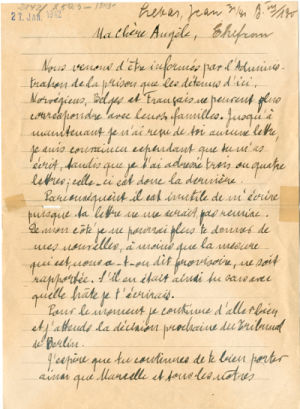 27 JAN. 1942
Ma Chère Angèle,
Nous venons d'être informés par l'Adminis-
tration de la prison que les détenus d'ici,
Norvégiens, Belges et Français ne peuvent plus
correspondre avec leurs familles. Jusqu'à
maintenant je n'ai reçu de toi aucune lettre
je suis convaincu cependant que tu m'as
écrit, tandis que je t'ai adressé trois ou quatre
lettres; celle-ci est donc la dernière.
Par conséquent il est inutile de m'écrire
puisque ta lettre ne me serait pas remise.
De mon côté je ne pourrai plus te donner de
mes nouvelles, à moins que la mesure
qui est, nous a-t-on dit provisoire, ne soit
rapportée. S'il en était ainsi tu sais avec
quelle hâte je t'écrirais.
Pour le moment je continue d'aller bien
et j'attends la décision prochaine du Tribunal
de Berlin.
J'espère que tu continues de te bien porter
ainsi que Marcelle et tous les nôtres